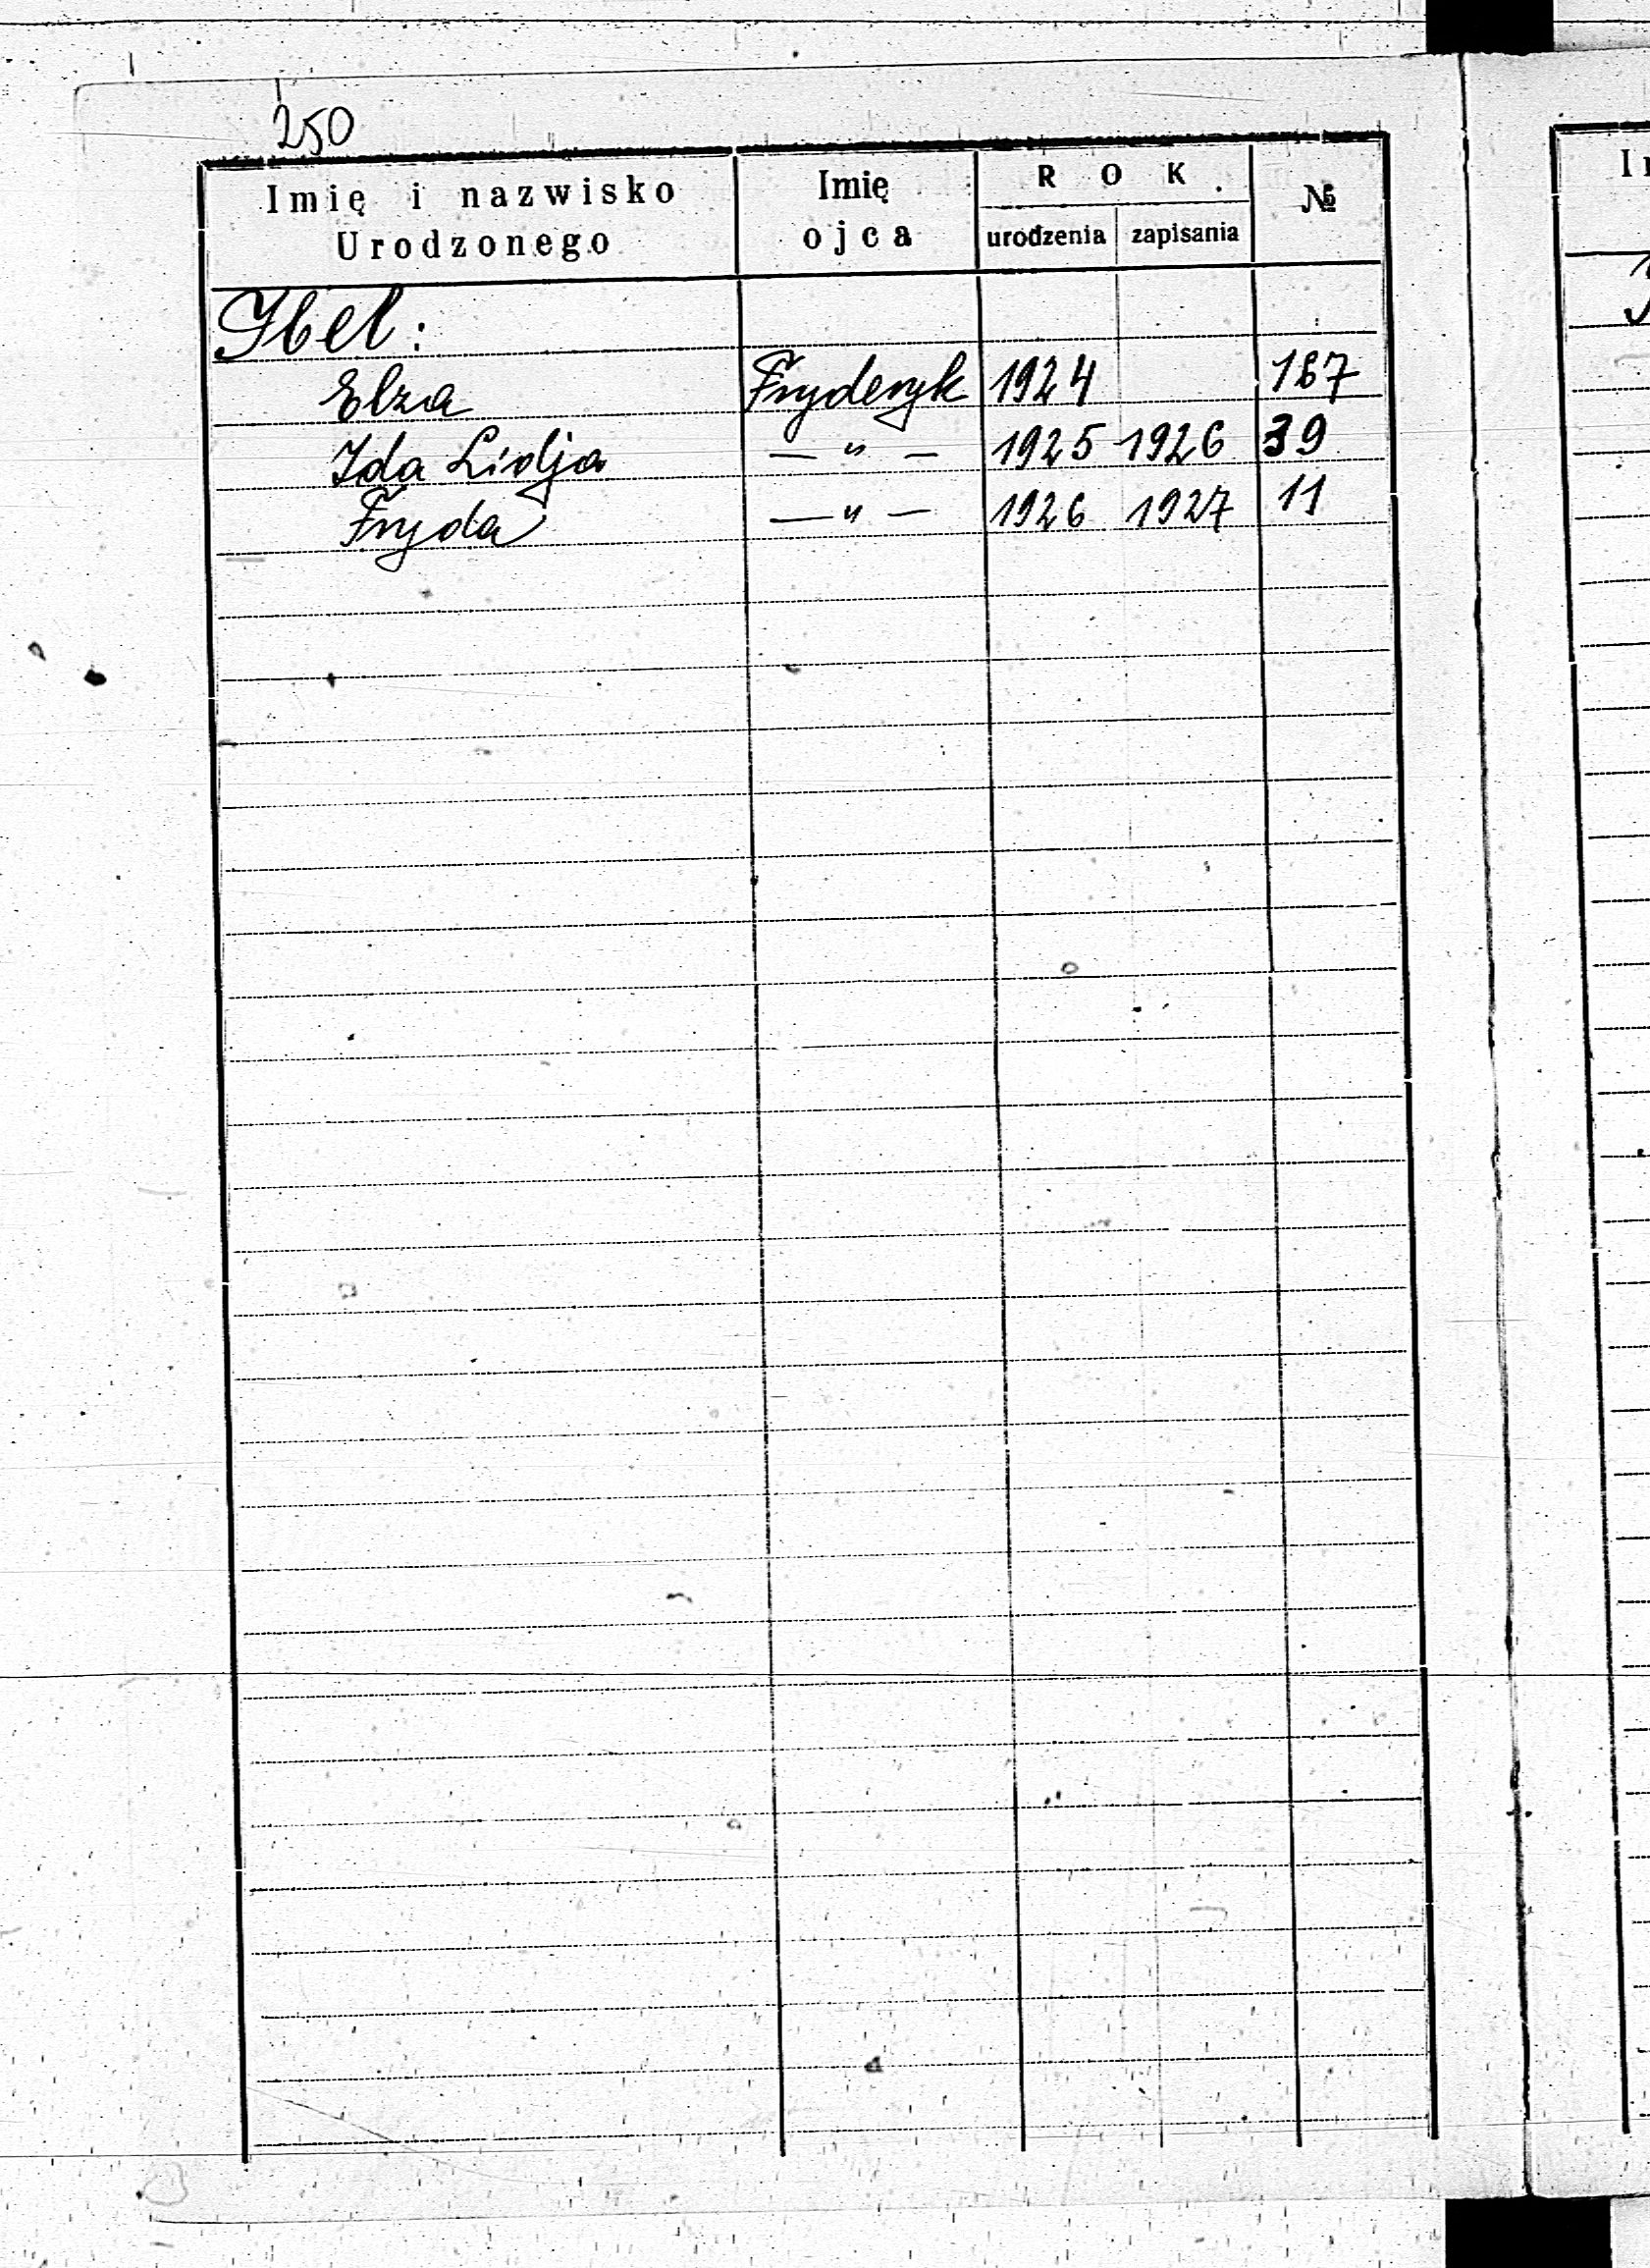 250
Imię i nazwisko Urodzonego Imię ojca ROK. urodzenia zapisania №
Ibel:
Elza Fryderyk 1924 167
Ida Lidja — " — 1925 1926 39
Fryda — " — 1926 1927 11